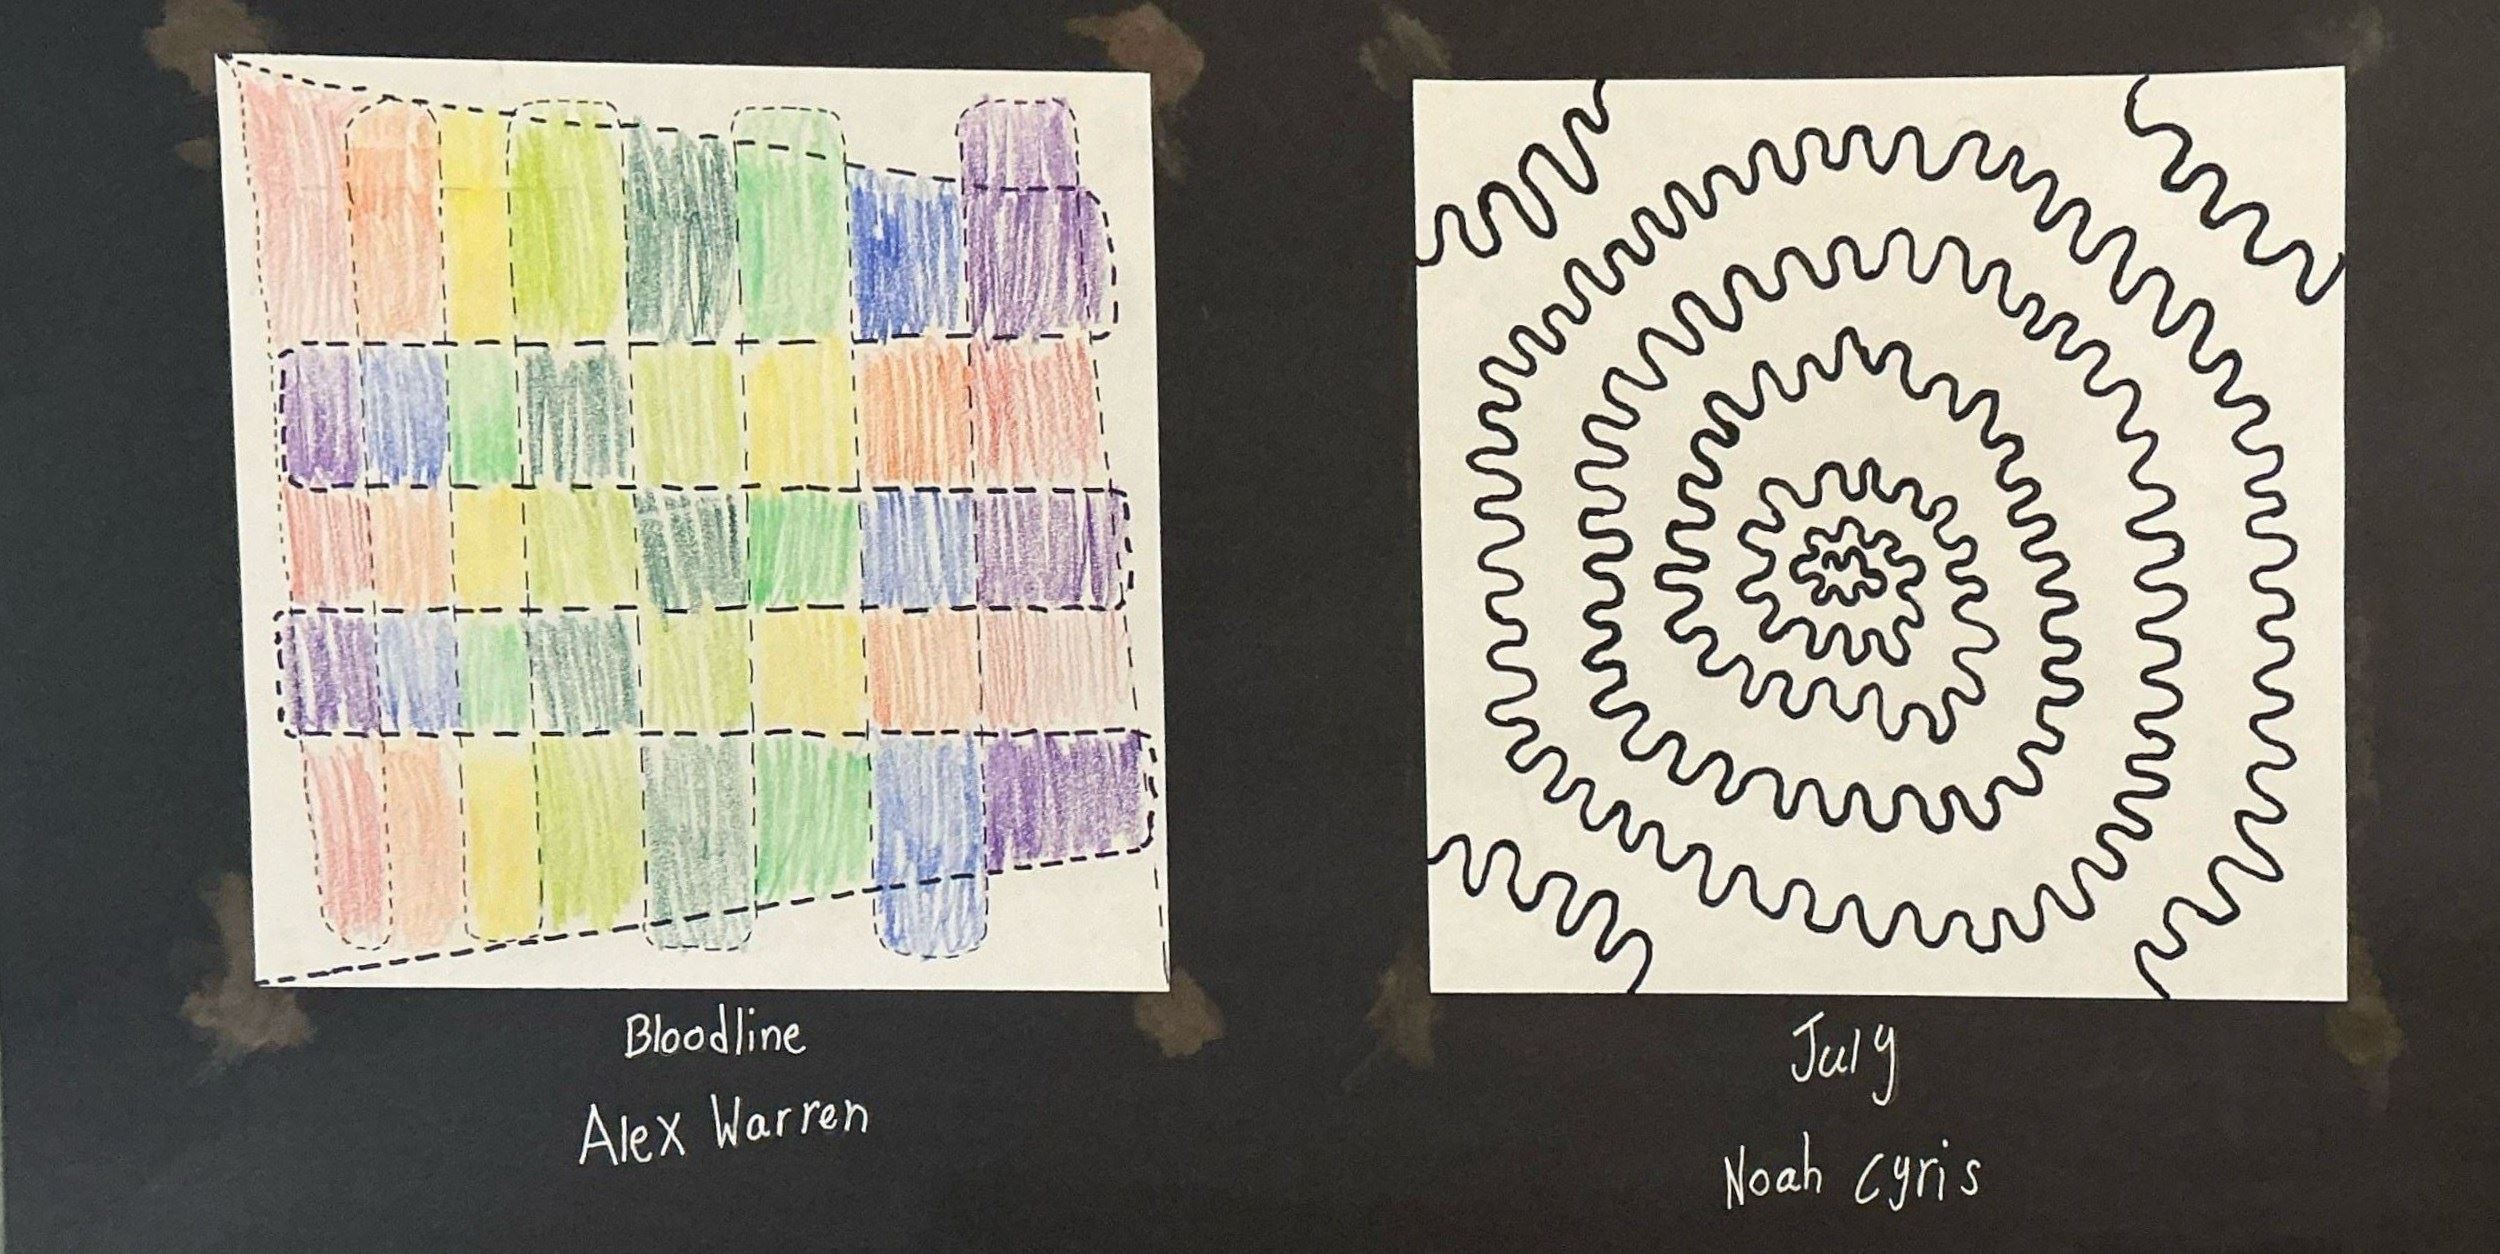 Bloodline
Alex Warren
July
Noah Cyris